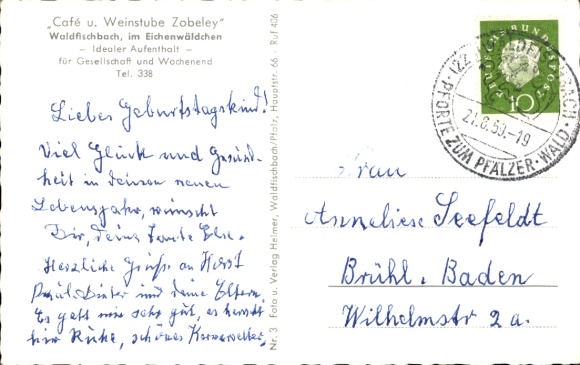 „Café u. Weinstube Zobeley"
Waldfischbach, im Eichenwäldchen
– Idealer Aufenthalt –
für Gesellschaft und Wochenend
Tel. 338
Liebes Geburtstagskind!
Viel Glück und Gesund-
heit in deinem neuen
Lebensjahr, wünscht
Dir, deine Tante Else.
Herzliche Grüße an Horst
Paul Dieter und deine Eltern.
Es geht mir sehr gut, es herrscht
hier Ruhe, schönes
Nr. 3 Foto u. Verlag Helmer, Waldfischbach/Pfalz, Hauptstr. 66 - Ruf 406
DEUTSCHE BUNDESPOST
10
(22
BACH
21.8.60.-19
· PFORTE ZUM PFÄLZER-WALD ·
Frau
Anneliese Seefeldt
Brühl. Baden
Wilhelmstr 2a.